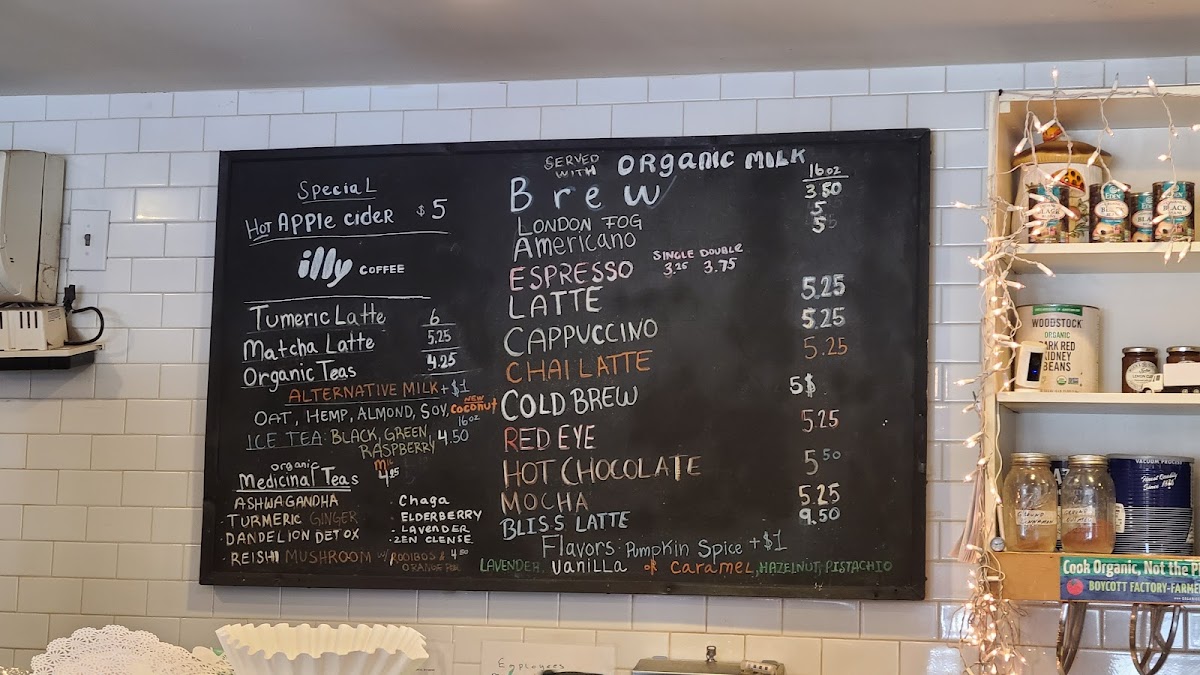 Special
Hot Apple cider $5
illy COFFEE
Tumeric Latte 6
Matcha Latte 5.25
Organic Teas 4.25
ALTERNATIVE MILK + $1
OAT, HEMP, ALMOND, SOY, NEW COCONUT
16 oz
ICE TEA: BLACK, GREEN, 4.50
RASPBERRY
organic
Medicinal Teas 4.85
ASHWAGANDHA
· TURMERIC GINGER
· DANDELION DETOX
· REISHI MUSHROOM W/ ROOIBOS & 4.50
· Chaga
· ELDERBERRY
· LAVENDER
· ZEN CLENSE
SERVED WITH ORGANIC MILK
16 oz
Brew 3.50
LONDON FOG 5
Americano 5
SINGLE DOUBLE
ESPRESSO 3.25 3.75
LATTE 5.25
CAPPUCCINO 5.25
CHAI LATTE 5.25
COLD BREW 5$
RED EYE 5.25
HOT CHOCOLATE 5.50
MOCHA 5.25
BLISS LATTE 9.50
Flavors: Pumpkin Spice + $1
LAVENDER, vanilla or caramel, HAZELNUT, PISTACHIO
EDEN
BLACK
WOODSTOCK
ORGANIC
DARK RED
KIDNEY
BEANS
VACUUM PACKED
Cook Organic, Not the P
BOYCOTT FACTORY-FARME
Employees